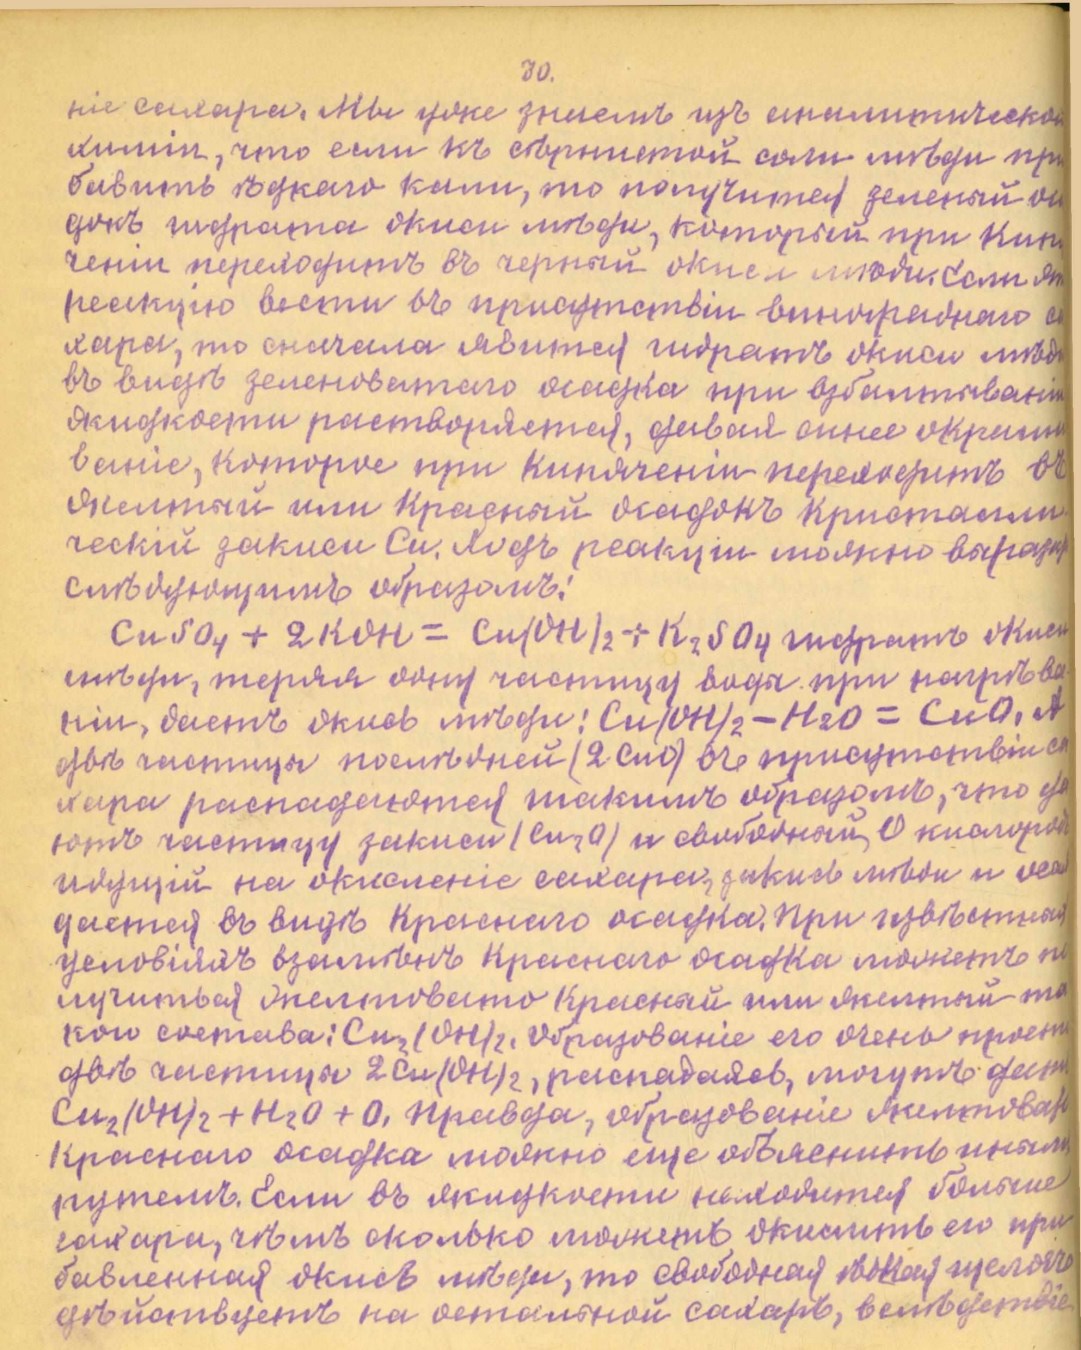 70.
ніе сахара. Мы уже знаемъ изъ аналитической
химіи, что если къ сѣрнистой соли мѣди при
бавить ѣдкаго кали, то получится зеленый оса
докъ гидрата окиси мѣди, который при кипя
ченіи переходитъ въ черный окиси мѣди. Если эту
реакцію вести въ присутствіи винограднаго са
хара, то сначала явится гидратъ окиси мѣди
въ видѣ зеленоватаго осадка при взбалтываніи
жидкости растворяется, давая синее окраши
ваніе, которое при кипяченіи переходитъ въ
желтый или красный осадокъ кристалли
ческій закиси Cu. Ходъ реакціи можно выразить
слѣдующимъ образомъ:
CuSO4 + 2KOH = Cu(OH)2 + K2SO4 гидратъ окиси
мѣди, теряя одну частицу воды при нагрѣва
ніи, дастъ окись мѣди: Cu(OH)2 – H2O = CuO. А
двѣ частицы послѣдней (2CuO) въ присутствіи са
хара распадаются такимъ образомъ, что да
ютъ частицу закиси (Cu2O) и свободный O кислородъ
идущій на окисленіе сахара, закись мѣди и оса
дается въ видѣ краснаго осадка. При извѣстныхъ
условіяхъ взамѣнъ краснаго осадка можетъ по
лучиться желтовато красный или желтый та
кого состава: Cu2(OH)2. Образованіе его очень просто
двѣ частицы 2Cu(OH)2, распадаясь, могутъ дать
Cu2(OH)2 + H2O + O. Правда, образованіе желтовато
краснаго осадка можно еще объяснить инымъ
путемъ. Если въ жидкости находится больше
сахара, чѣмъ сколько можетъ окислить его при
бавленная окись мѣди, то свободная ѣдкая щелочь
дѣйствуетъ на остальной сахаръ, вслѣдствіе